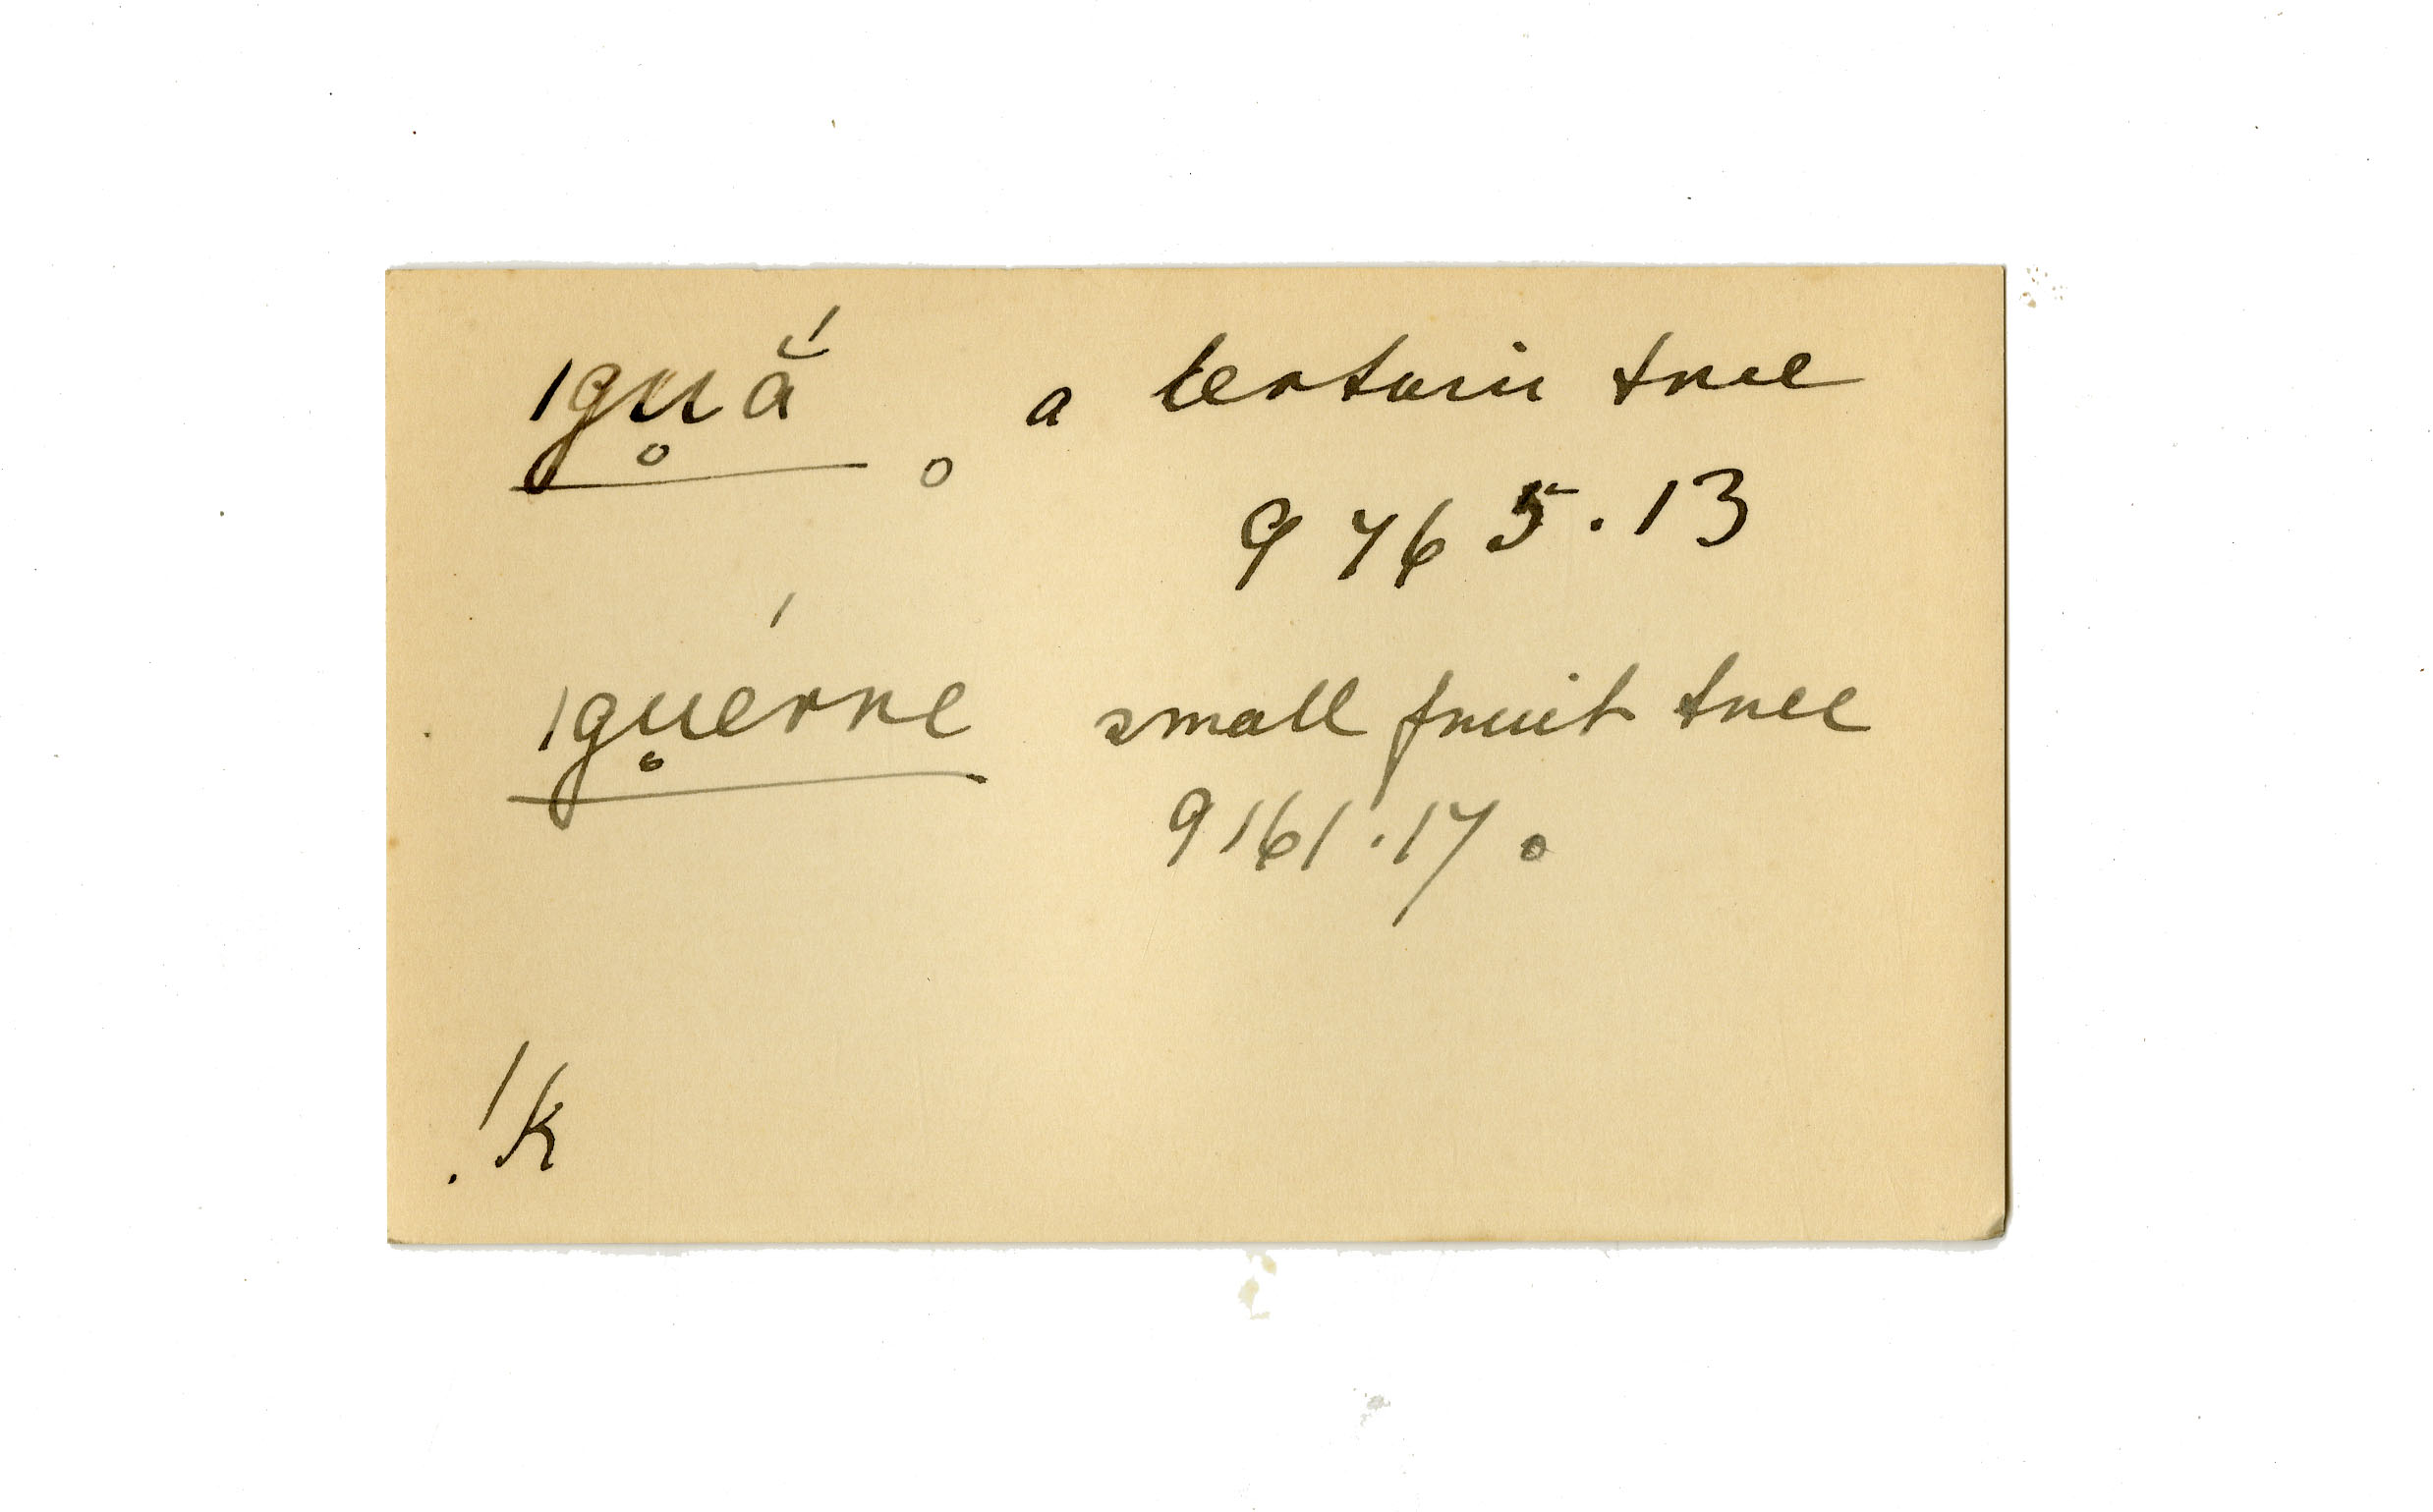 ıgu̥ắ. a certain tree
9765.13
ıgu̥érre small fruit tree
9161.17.
!k